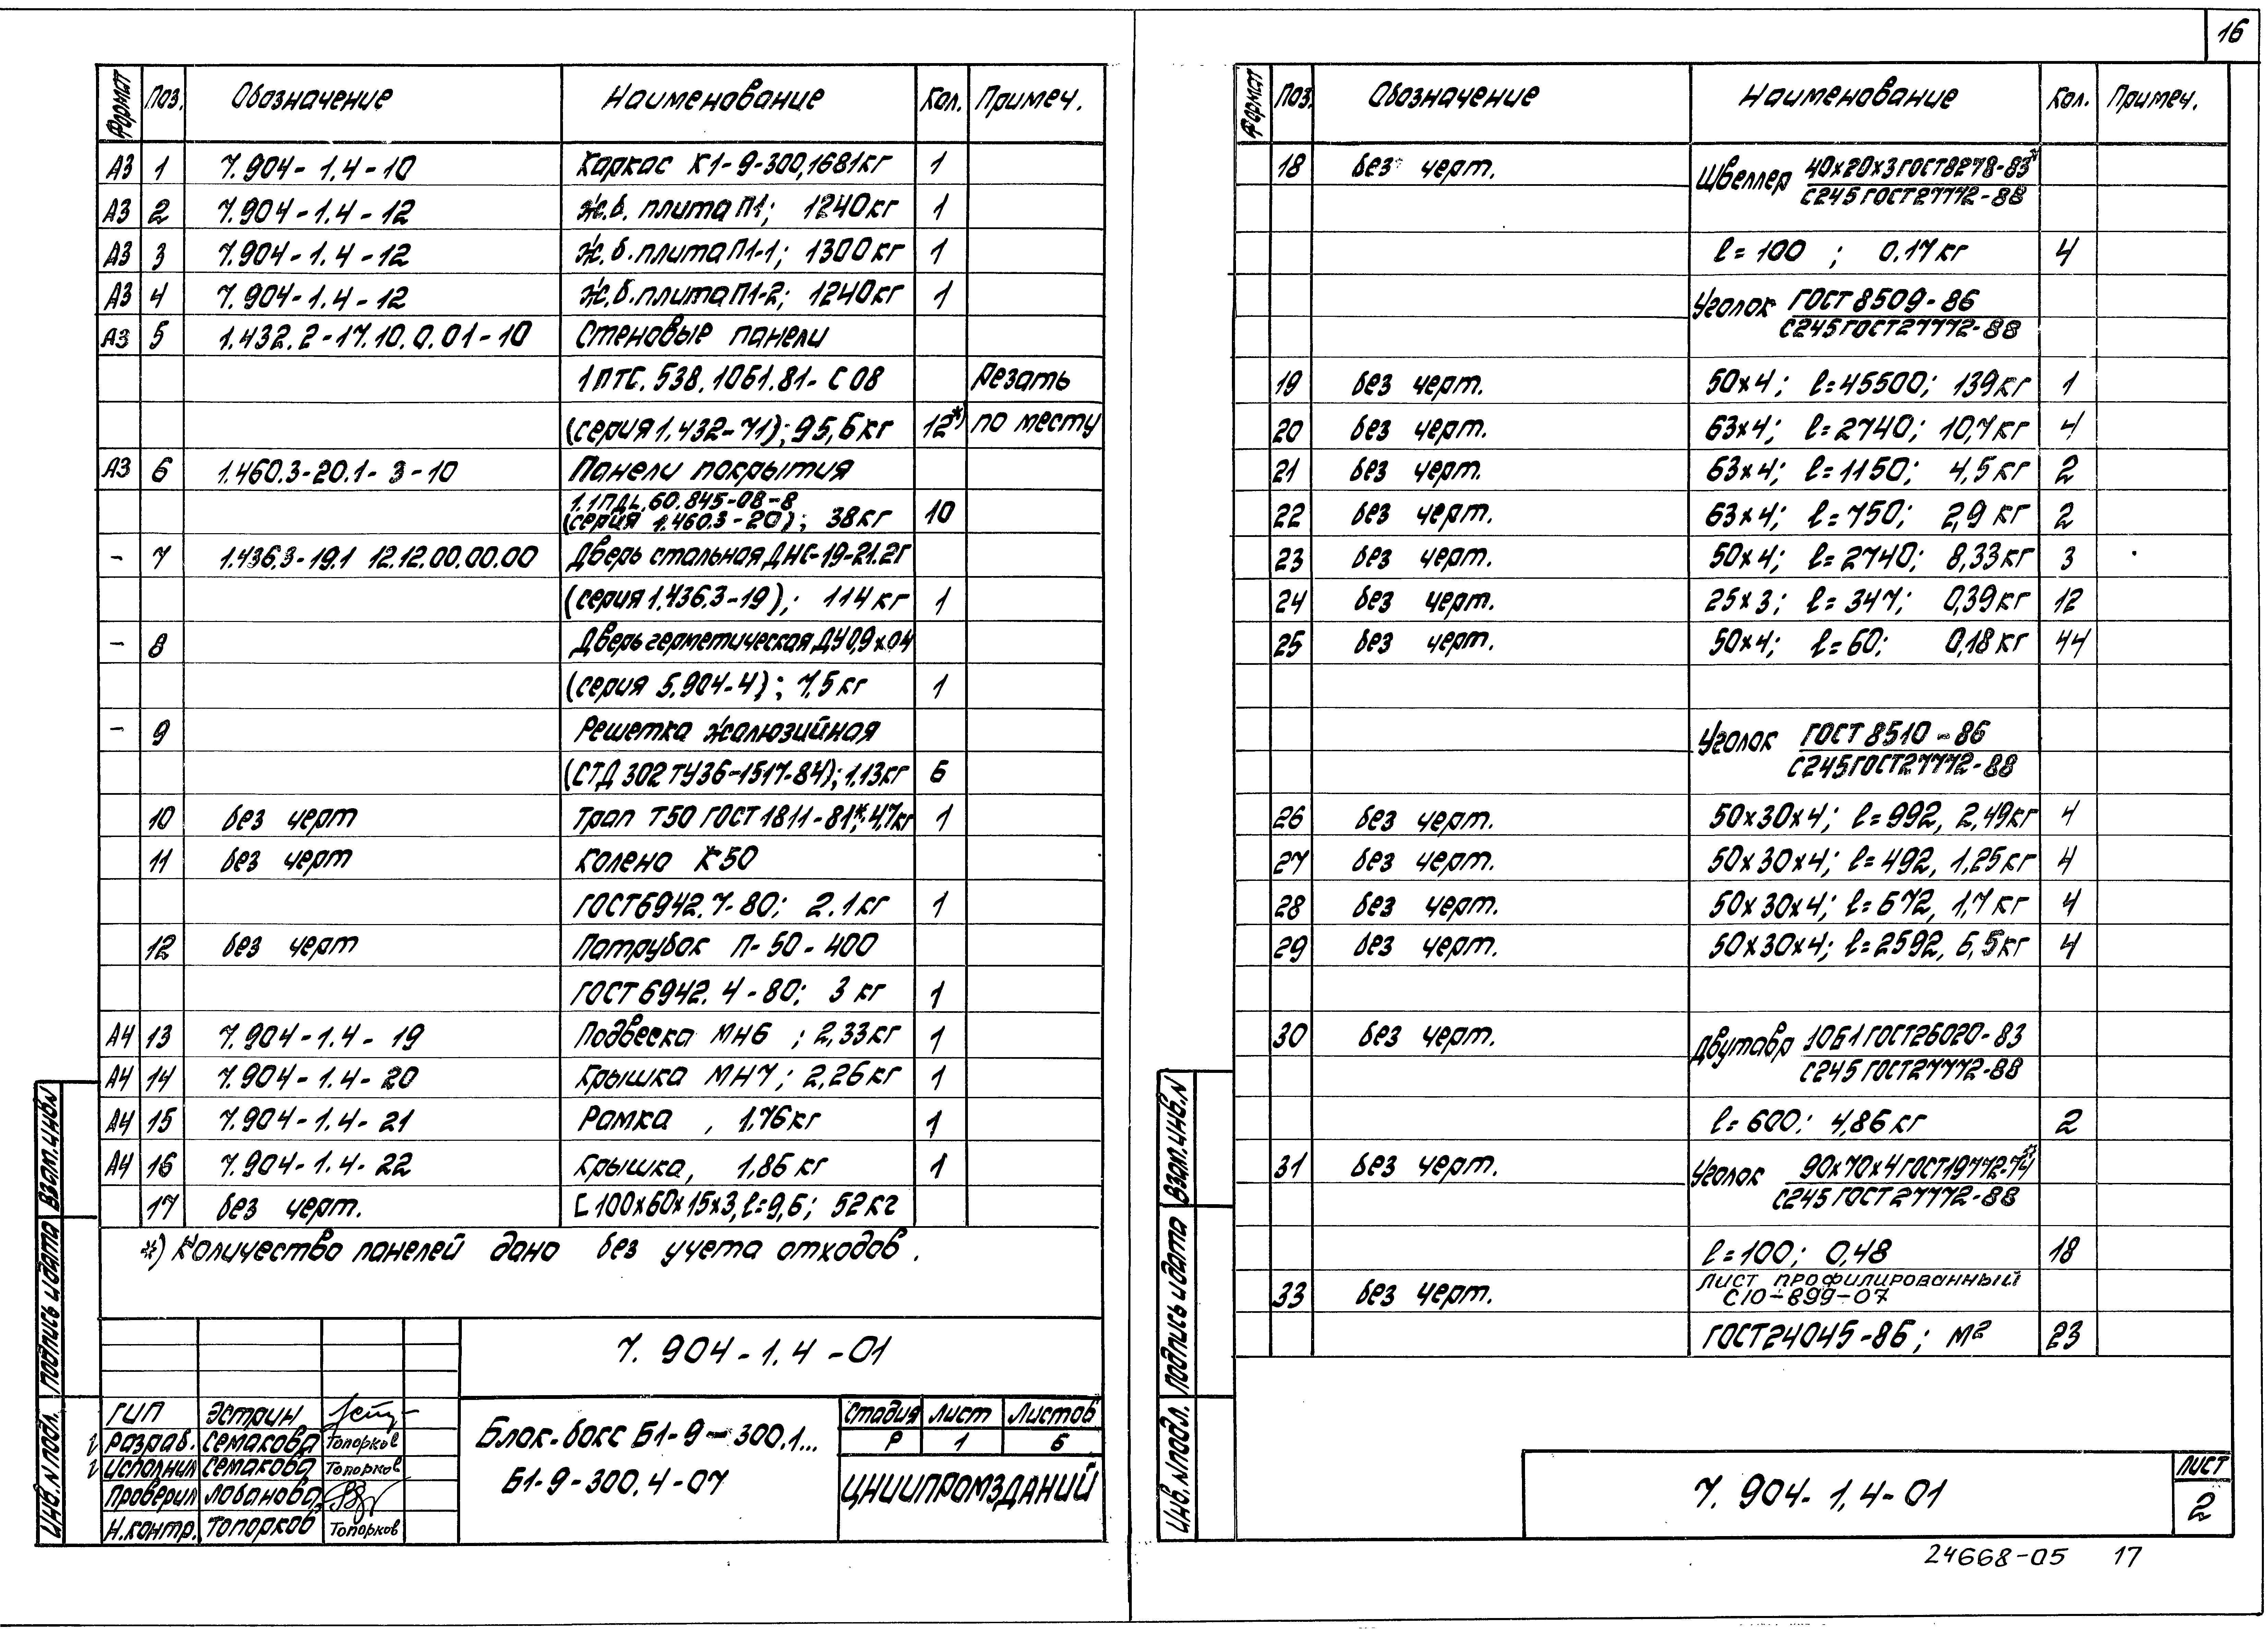 16
Формат Поз. Обозначение Наименование Кол. Примеч.
А3 1 7.904-1.4-10 Каркас К1-9-300,1681кг 1
А3 2 7.904-1.4-12 Ж.б. плита П1; 1240кг 1
А3 3 7.904-1.4-12 Ж.б. плита П1-1; 1300кг 1
А3 4 7.904-1.4-12 Ж.б. плита П1-2; 1240кг 1
А3 5 1.432.2-17.10.0.01-10 Стеновые панели
1ПТС.538.1061.81-С08 Резать
(серия 1.432-71); 95,6кг 12*) по месту
А3 6 1.460.3-20.1-3-10 Панели покрытия
1.1ПДL.60.845-08-8
(серия 1.460.3-20); 38кг 10
- 7 1.436.3-19.1 12.12.00.00.00 Дверь стальная ДНС-19-21.2Г
(серия 1.436.3-19); 114кг 1
- 8 Дверь герметическая ДУ0,9х0.4
(серия 5.904-4); 7,5кг 1
- 9 Решетка жалюзийная
(СТД 302 ТУ36-1517-84); 1.13кг 6
10 без черт Трап Т50 ГОСТ 1811-81*; 4,7кг 1
11 без черт Колено К50
ГОСТ6942.7-80; 2.1кг 1
12 без черт Патрубок П-50-400
ГОСТ6942.4-80; 3 кг 1
А4 13 7.904-1.4-19 Подвеска МН6 ; 2,33кг 1
А4 14 7.904-1.4-20 Крышка МН7; 2,26кг 1
А4 15 7.904-1.4-21 Рамка , 1,76кг 1
А4 16 7.904-1.4-22 Крышка, 1,86 кг 1
17 без черт. С 100х60х15х3, l=9,6; 52кг
*) Количество панелей дано без учета отходов.
7.904-1.4-01
ГИП Эстрин
Разраб. Семакова Топорков
Исполнил Семакова Топорков
Проверил Лобанова
Н.контр. Топорков Топорков
Блок-бокс Б1-9-300.1...
Б1-9-300.4-07
Стадия Лист Листов
Р 1 6
ЦНИИПРОМЗДАНИЙ
Инв.N подл. Подпись и дата Взам.инв.N
Формат Поз. Обозначение Наименование Кол. Примеч.
18 без черт. Швеллер 40х20х3ГОСТ8278-83*
С245ГОСТ27772-88
l=100 ; 0.17кг 4
Уголок ГОСТ8509-86
С245ГОСТ27772-88
19 без черт. 50х4; l=45500; 139кг 1
20 без черт. 63х4; l=2740; 10,7кг 4
21 без черт. 63х4; l=1150; 4,5кг 2
22 без черт. 63х4; l=750; 2,9 кг 2
23 без черт. 50х4; l=2740; 8,33кг 3
24 без черт. 25х3; l=347; 0,39кг 12
25 без черт. 50х4; l=60; 0,18кг 44
Уголок ГОСТ8510-86
С245ГОСТ27772-88
26 без черт. 50х30х4; l=992, 2,49кг 4
27 без черт. 50х30х4; l=492, 1,25кг 4
28 без черт. 50х30х4; l=672, 1,7кг 4
29 без черт. 50х30х4; l=2592, 6,5кг 4
30 без черт. Двутавр 10Б1ГОСТ26020-83
С245ГОСТ27772-88
l=600; 4,86кг 2
31 без черт. Уголок 90х70х4ГОСТ19772-74*
С245ГОСТ27772-88
l=100; 0,48 18
33 без черт. Лист профилированный
С10-899-07
ГОСТ24045-86; м2 23
Инв.N подл. Подпись и дата Взам.инв.N
7.904-1.4-01
Лист
2
24668-05 17